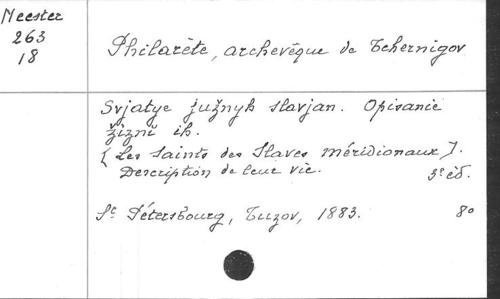 Meester
263
18
Philarète, archevêque de Tchernigov
Svjatye južnyh slavjan. Opisanie
žizni ih.
[Les Saints des Slaves méridionaux].
Description de leur vie. 3e éd.
St Pétersbourg, Tuzov, 1883. 8o